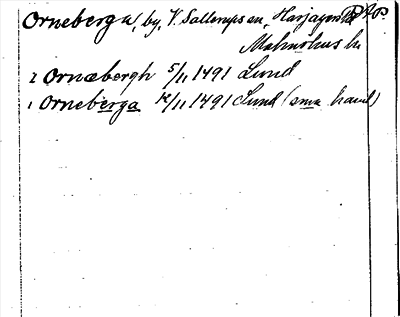 Orneberga, by, V. Sallerups sn, Harjagers
Malmöhus län
2 Ornæbergh 5/11 1491 Lund
1 Orneberga 12/11 1491 Lund (sma hand)